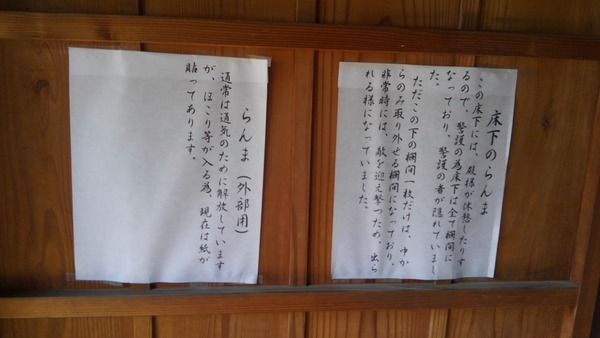 床下のらんま
この床下には、殿様が休憩したりす
るので、警護の為床下は全て欄間に
なっており、警護の者が隠れていまし
た。
ただこの下の欄間一枚だけは、中か
らのみ取り外せる欄間になっており、
非常時には、敵を迎え撃つため、出ら
れる様になっていました。
らんま（外部用）
通常は通気のために解放しています
が、ほこり等が入る為、現在は紙が
貼ってあります。